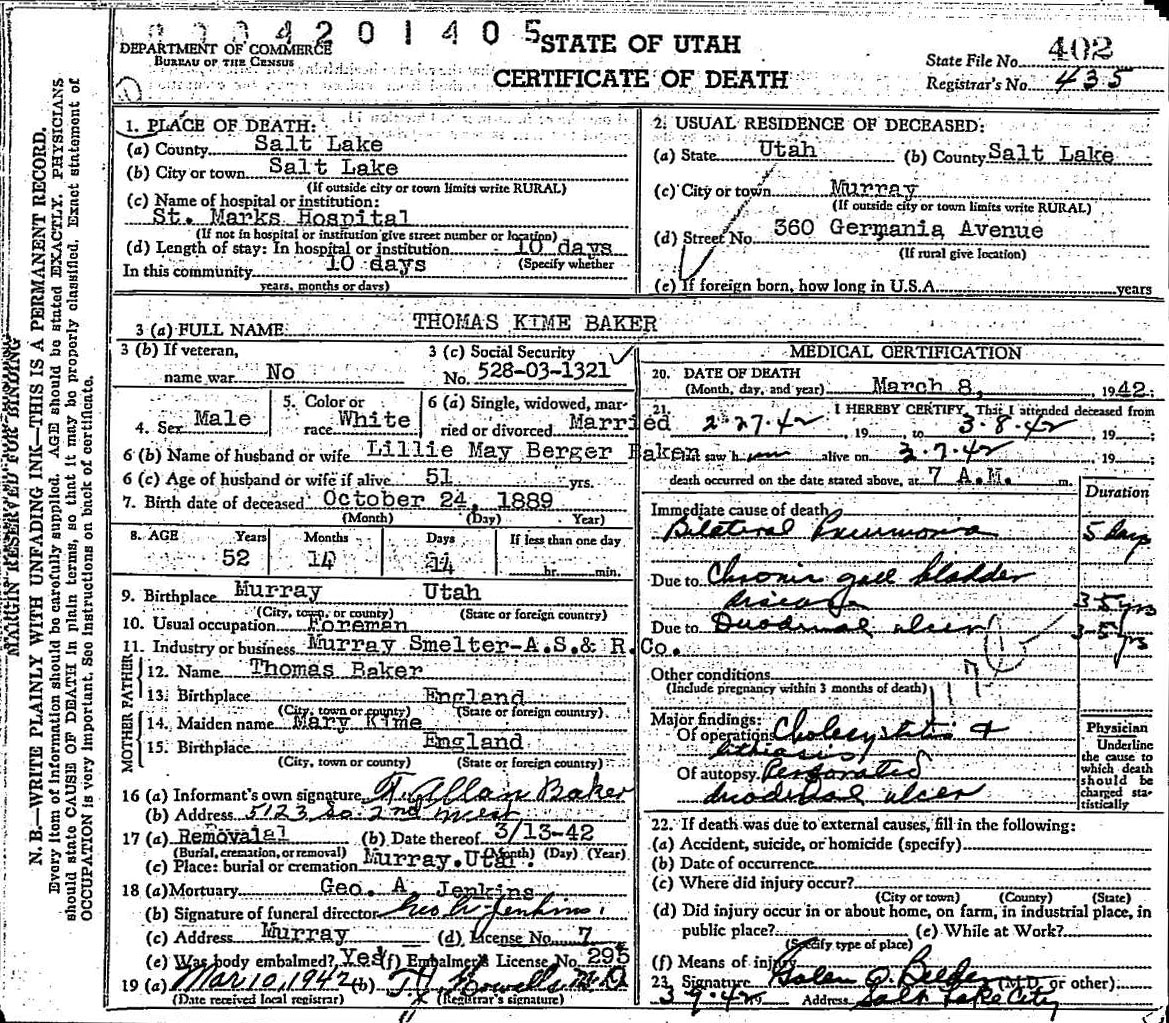 0 0 0 4 2 0 1 4 0 5
DEPARTMENT OF COMMERCE
BUREAU OF THE CENSUS
STATE OF UTAH
CERTIFICATE OF DEATH
State File No. 402
Registrar's No. 435
MARGIN RESERVED FOR BINDING
N. B.—WRITE PLAINLY WITH UNFADING INK—THIS IS A PERMANENT RECORD.
Every item of information should be carefully supplied. AGE should be stated EXACTLY. PHYSICIANS
should state CAUSE OF DEATH in plain terms, so that it may be properly classified. Exact statement of
OCCUPATION is very important. See Instructions on back of certificate.
1. PLACE OF DEATH:
(a) County Salt Lake
(b) City or town Salt Lake
(If outside city or town limits write RURAL)
(c) Name of hospital or institution:
St. Marks Hospital
(If not in hospital or institution give street number or location)
(d) Length of stay: In hospital or institution 10 days
(Specify whether
In this community 10 days
years, months or days)
2. USUAL RESIDENCE OF DECEASED:
(a) State Utah (b) County Salt Lake
(c) City or town Murray
(If outside city or town limits write RURAL)
(d) Street No. 360 Germania Avenue
(If rural give location)
(e) If foreign born, how long in U.S.A. years
3 (a) FULL NAME THOMAS KIME BAKER
3 (b) If veteran,
name war No
3 (c) Social Security
No. 528-03-1321
4. Sex Male
5. Color or
race White
6 (a) Single, widowed, mar-
ried or divorced Married
6 (b) Name of husband or wife Lillie May Berger Baker
6 (c) Age of husband or wife if alive 51 yrs.
7. Birth date of deceased October 24, 1889
(Month) (Day) Year)
8. AGE Years Months Days If less than one day
52 14 14 hr. min.
9. Birthplace Murray Utah
(City, town, or county) (State or foreign country)
10. Usual occupation Foreman
11. Industry or business Murray Smelter-A.S.& R.Co.
FATHER
12. Name Thomas Baker
13. Birthplace England
(City, town or county) (State or foreign country)
MOTHER
14. Maiden name Mary Kime
15. Birthplace England
(City, town or county) (State or foreign country)
16 (a) Informant's own signature T. Allan Baker
(b) Address 5123 So. 2nd West
17 (a) Removalal (b) Date thereof 3/13-42
(Burial, cremation, or removal) (Month) (Day) (Year)
(c) Place: burial or cremation Murray.Utah.
18 (a) Mortuary Geo. A. Jenkins
(b) Signature of funeral director Geo A Jenkins
(c) Address Murray (d) License No. 7
(e) Was body embalmed? Yes (f) Embalmer's License No. 295
19 (a) Mar 10, 1942 (b) T. J. Howells M.D.
(Date received local registrar) (Registrar's signature)
MEDICAL CERTIFICATION
20. DATE OF DEATH
(Month, day, and year) March 8, 1942.
21. I HEREBY CERTIFY, That I attended deceased from
2-27-42, 19 to 3-8-42, 19 ;
that I saw h im alive on 3-7-42 19 ;
death occurred on the date stated above, at 7 A.M. m.
Duration
Immediate cause of death
Bilateral Pneumonia 5 days
Due to Chronic gall bladder
disease 3-5 yrs
Due to Duodenal ulcer 3-5 yrs
117 1
Other conditions
(Include pregnancy within 3 months of death)
Major findings:
Of operations Cholecystitis &
lithiasis
Of autopsy Perforated
duodenal ulcer
Physician
Underline
the cause to
which death
should be
charged sta-
tistically
22. If death was due to external causes, fill in the following:
(a) Accident, suicide, or homicide (specify)
(b) Date of occurrence
(c) Where did injury occur?
(City or town) (County) (State)
(d) Did injury occur in or about home, on farm, in industrial place, in
public place? (e) While at Work?
(Specify type of place)
(f) Means of injury
23. Signature Galen O. Belden (M.D. or other)
3-9-42 Address Salt Lake City